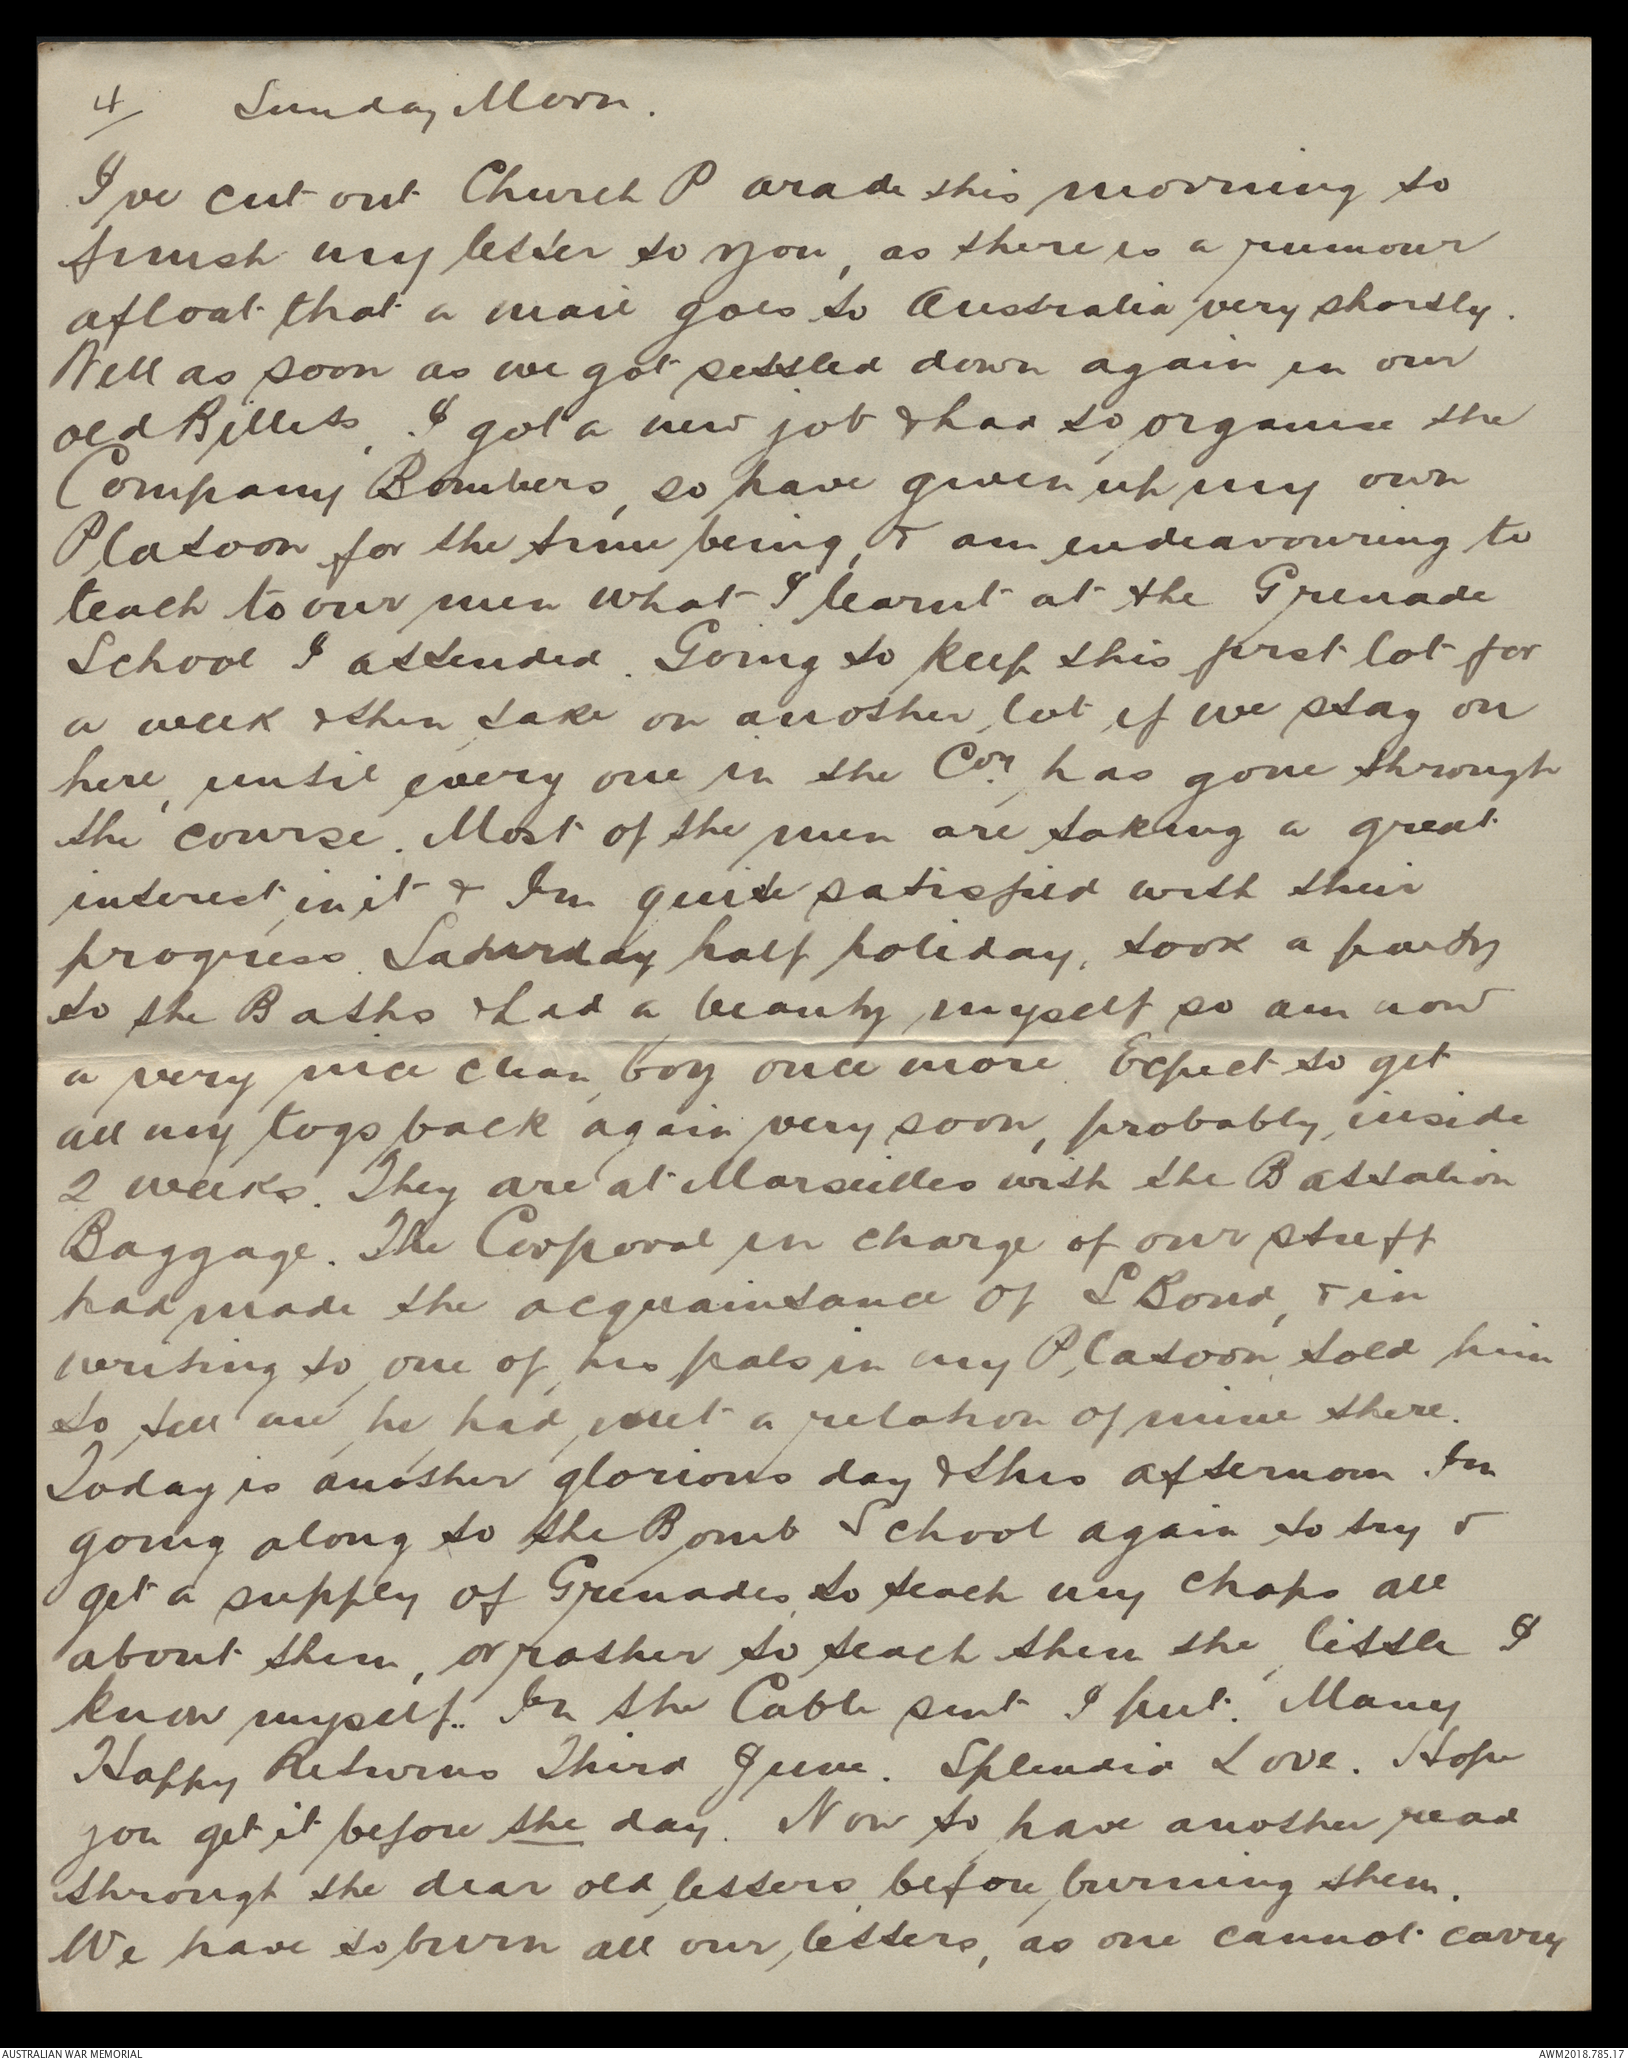 4/ Sunday Morn.
I've cut out Church Parade this morning to
finish my letter to you, as there is a rumour
afloat that a mail goes to Australia very shortly.
Well as soon as we got settled down again in our
old Billets, I got a new job & had to organise the
Company Bombers, so have given up my own
Platoon for the time being, & am endeavouring to
teach to our men what I learnt at the Grenade
School I attended. Going to keep this first lot for
a week & then take on another lot if we stay on
here, until every one in the Coy. has gone through
the course. Most of the men are taking a great
interest in it & I'm quite satisfied with their
progress. Saturday half holiday, took a party
to the Baths & had a beauty myself so am now
a very nice clean boy once more. Expect to get
all my togs back again very soon, probably inside
2 weeks. They are at Marseilles with the Battalion
Baggage. The Corporal in charge of our stuff
had made the acquaintance of L Bond, & in
writing to one of his pals in my Platoon told him
to tell me he had met a relation of mine there.
Today is another glorious day & this afternoon I'm
going along to the Bomb School again to try &
get a supply of Grenades to teach my chaps all
about them, or rather to teach them the little I
know myself. In the Cable sent I put. Many
Happy Returns Third June. Splendid Love. Hope
you get it before the day. Now to have another read
through the dear old letters before burning them.
We have to burn all our letters, as one cannot carry
AUSTRALIAN WAR MEMORIAL
AWM2018.785.17